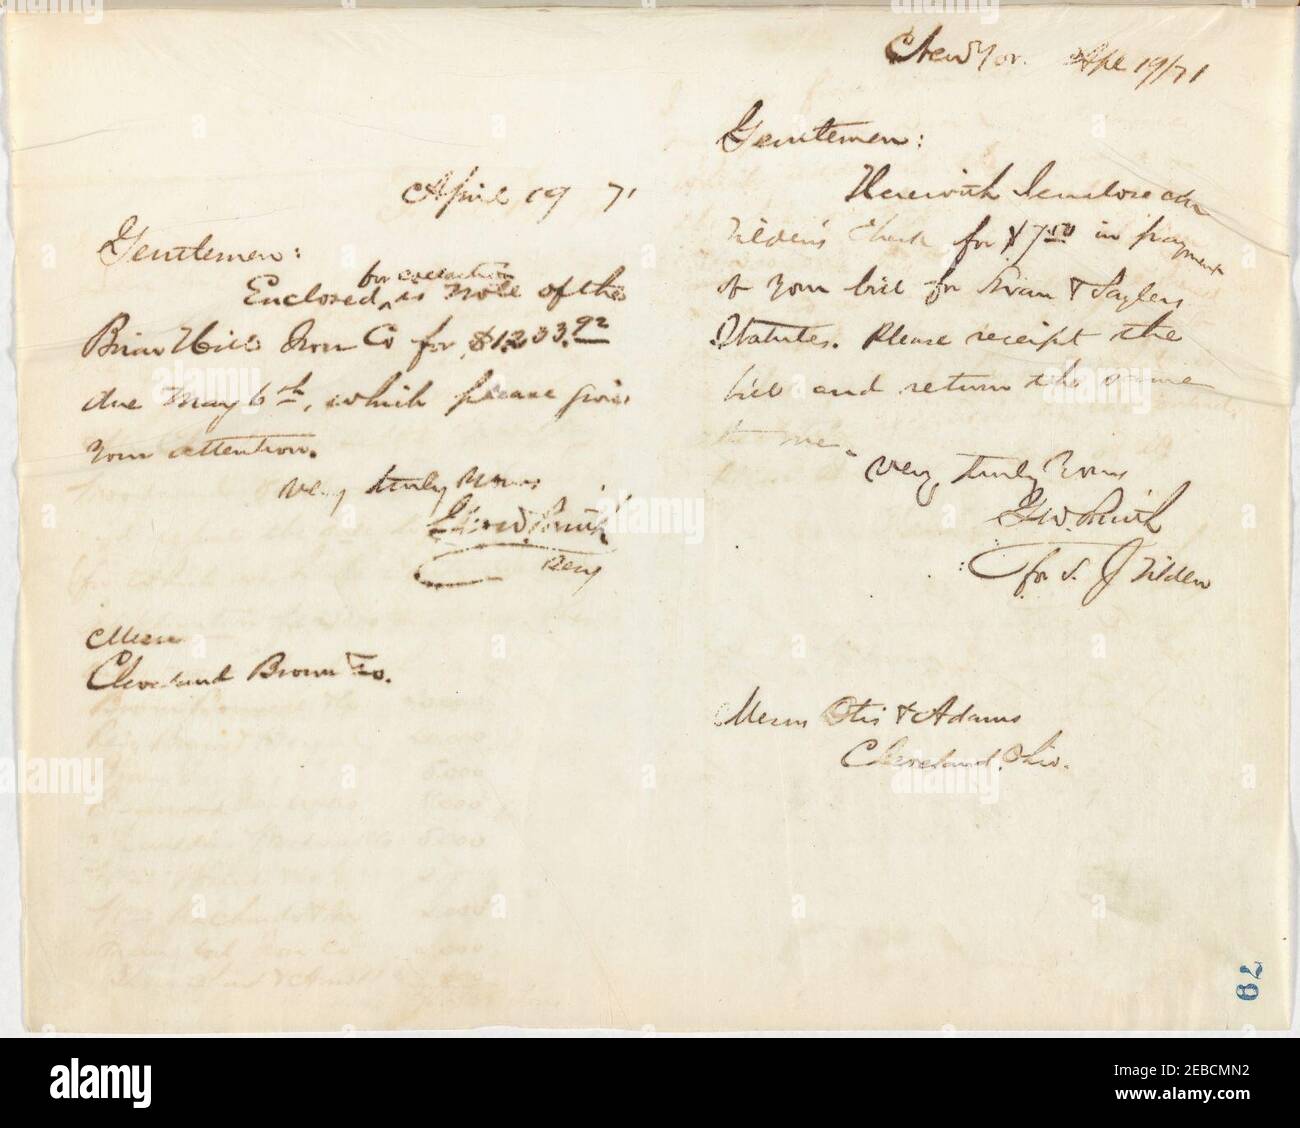 April 19 71
Gentlemen:
for collection
Enclosed ^ is note of the
Briar Hill Iron Co for $1233.92
due May 6th, which please give
Your attention.
Very truly Yours
Geo W. Smith
Secy
Messrs
Cleveland Brown & Co.
New Yor. Apl 19/71
Gentlemen:
Herewith I enclose
Tilden's Check for $7.50 in payment
of Your bill for Swan & Saylers
Statutes. Please receipt the
bill and return the same
to me.
Very truly Yours
G.W. Smith
for S. J Tilden
Messrs Otis & Adams
Cleveland, Ohio.
79
alamy
Image ID: 2EBCMN2
www.alamy.com